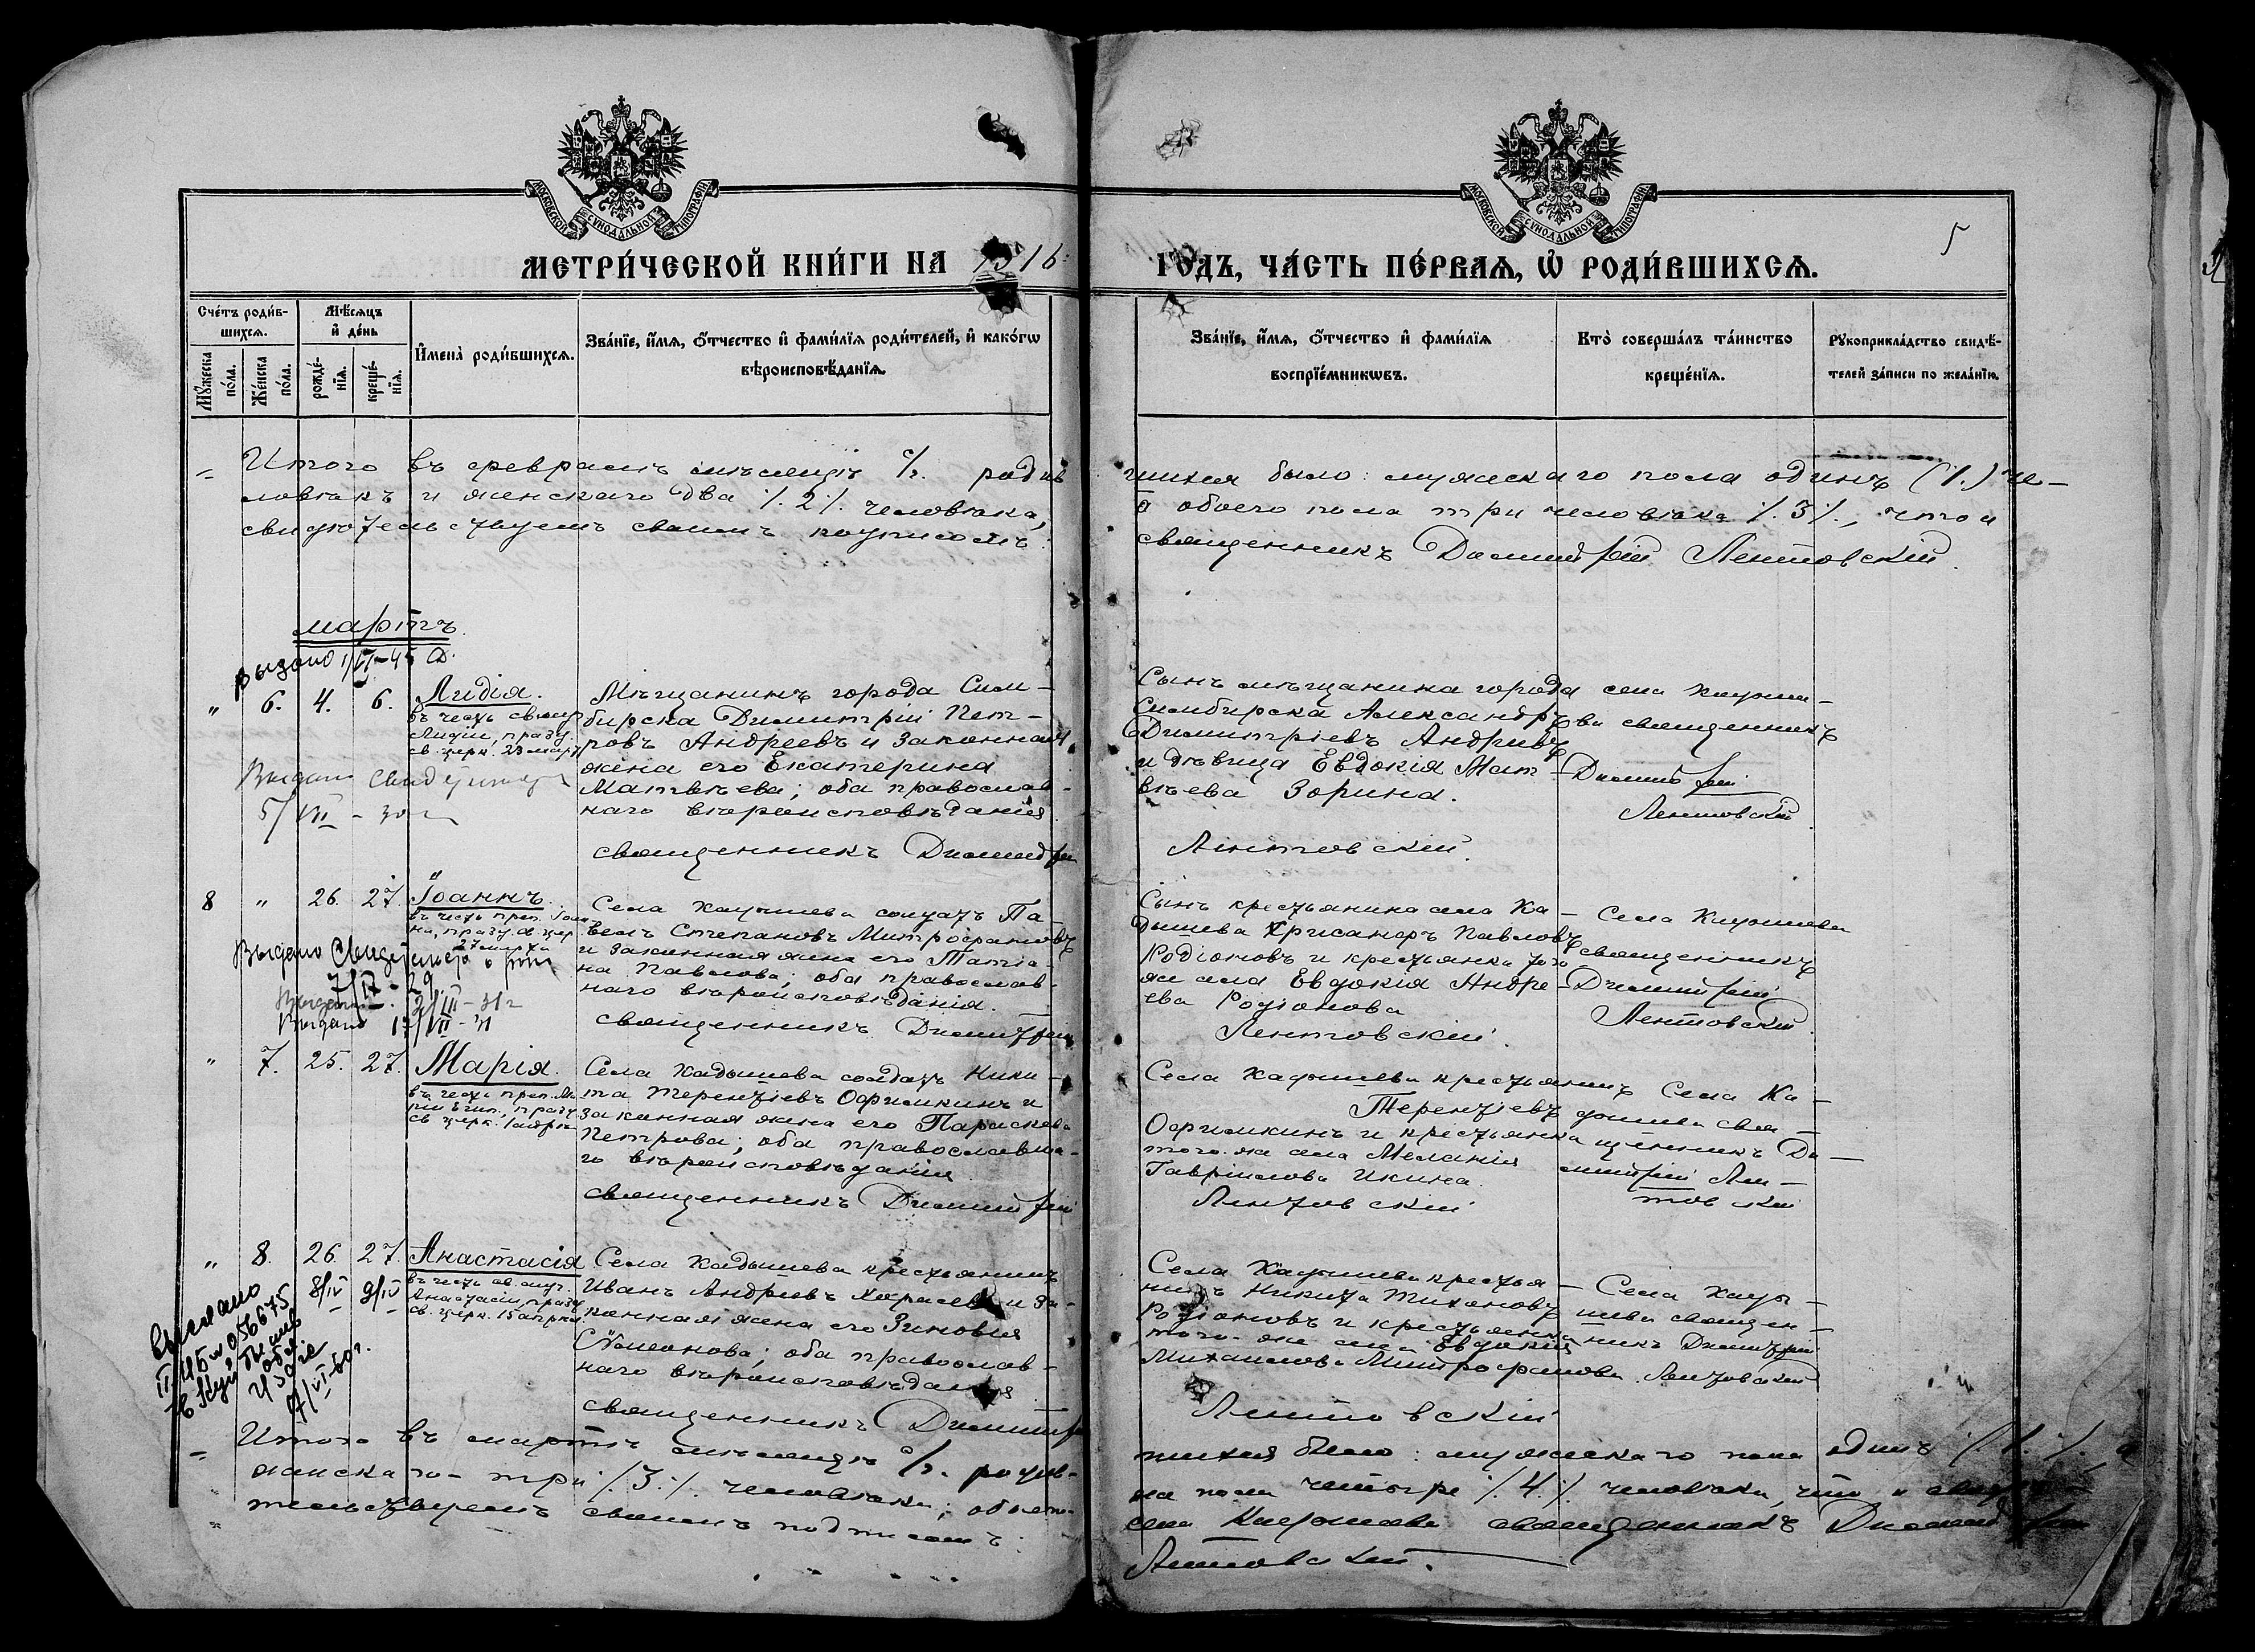 МОСКОВСКОЙ СУНОДАЛЬНОЙ ТИПОГРАФІИ
МОСКОВСКОЙ СУНОДАЛЬНОЙ ТИПОГРАФІИ
5
МЕТРИ́ЧЕСКОЙ КНИ́ГИ НА 1916 ГОДЪ, ЧА́СТЬ ПЕ́РВАѦ, Ѡ҆ РОДИ́ВШИХСѦ.
Сче́тъ роди́в-
шихсѧ.
Мꙋ́жеска по́ла.
Же́нска по́ла.
Мѣ́сѧцъ
и҆ де́нь
рожде́-нїѧ.
креще́-нїѧ.
И҆мена̀ роди́вшихсѧ.
Зва́нїе, и҆́мѧ, ѻ҆́тчество и҆ фами́лїѧ роди́телей, и҆ како́гѡ
вѣроисповѣ́данїѧ.
Зва́нїе, и҆́мѧ, ѻ҆́тчество и҆ фами́лїѧ
воспрїе́мникѡвъ.
Кто̀ соверша́лъ та́инство
креще́нїѧ.
Рꙋкоприкла́дство свидѣ́-
телей за́писи по жела́нїю.
Итого въ февралѣ мѣсяцѣ с/г. родив
шихся было: мужескаго пола одинъ (1.) че-
ловѣкъ и женскаго два /.2/. человѣка,
а обоего пола три человѣка /.3/., что и
свидѣтельствуемъ своимъ подписомъ:
священникъ Димитрій Лентовскій.
мартъ.
Выдано 1/VI-45
" 6. 4. 6. Лидія.
въ честь свмц
Лидіи, празд.
св. церк. 23 март
Выдано Свид
5/VII - 30 г
Мѣщанинъ города Сим-
бирска Димитрій Пет-
ровъ Андреевъ и законная
жена его Екатерина
Матвѣева; оба православ-
наго вѣроисповѣданія.
священникъ Димитрій
Сынъ мѣщанина города
Симбирска Александръ
Димитріевъ Андреевъ
и дѣвица Евдокія Мат-
вѣева Зорина.
Лентовскій.
села Кадыше-
ва священникъ
Димитрій
Лентовскій.
8 " 26. 27. Іоаннъ.
въ честь преп. Іоан-
на, празд. св. цер.
27 марта
Выдано
7/IV - 29.
Выдано 2/III - 31 г
Выдано 17/VII - 31
Села Кадышева солдатъ Па-
велъ Степановъ Митрофановъ
и законная жена его Татіа-
на Павлова; оба православ-
наго вѣроисповѣданія.
священникъ Димитрій
Сынъ крестьянина села Ка-
дышева Хрисанфъ Павловъ
Родіоновъ и крестьянка того
же села Евдокія Андре-
ева Родіонова
Лентовскій.
Села Кадышева
священникъ
Димитрій
Лентовскій.
" 7. 25. 27. Марія.
въ честь преп. Ма-
ріи Егип., празд.
св. церк. 1 апрѣл
Села Кадышева солдатъ Ники-
та Терентіевъ Офимкинъ и
законная жена его Параскева
Петрова; оба православна-
го вѣроисповѣданія
священникъ Димитрій
Села Кадышева крестьянинъ
Терентіевъ
Офимкинъ и крестьянка
того-же села Меланія
Гавріилова Икина.
Лентовскій
Села Ка-
дышева свя-
щенникъ Ди-
митрій Лен-
товскій
" 8. 26. 27. Анастасія
8/IV 9/IV
въ честь св. мц.
Анастасіи, празд
св. церк. 15 апрѣл.
Выслано
7/VI-60 г.
Села Кадышева крестьянинъ
Иванъ Андреевъ и за-
конная жена его Зиновія
оба православ-
наго вѣроисповѣданія
священникъ Димитрій
Села Кадышева крестья-
нинъ Никита Тихоновъ
Родіоновъ и крестьянка
того-же села Евдокія
Михаилова Митрофанова.
Лентовскій
Села Кады-
шева священ-
никъ Димитрій
Лентовскій
Итого въ мартѣ мѣсяцѣ с/г. родив-
шихся было: мужескаго пола одинъ /.1./. а
женскаго- три /.3./. человѣка; обоего-
на пола четыре /.4./. человѣка, что и свидѣ
тельствуемъ своимъ подписомъ:
села Кадышева священникъ Димитрій
Лентовскій.